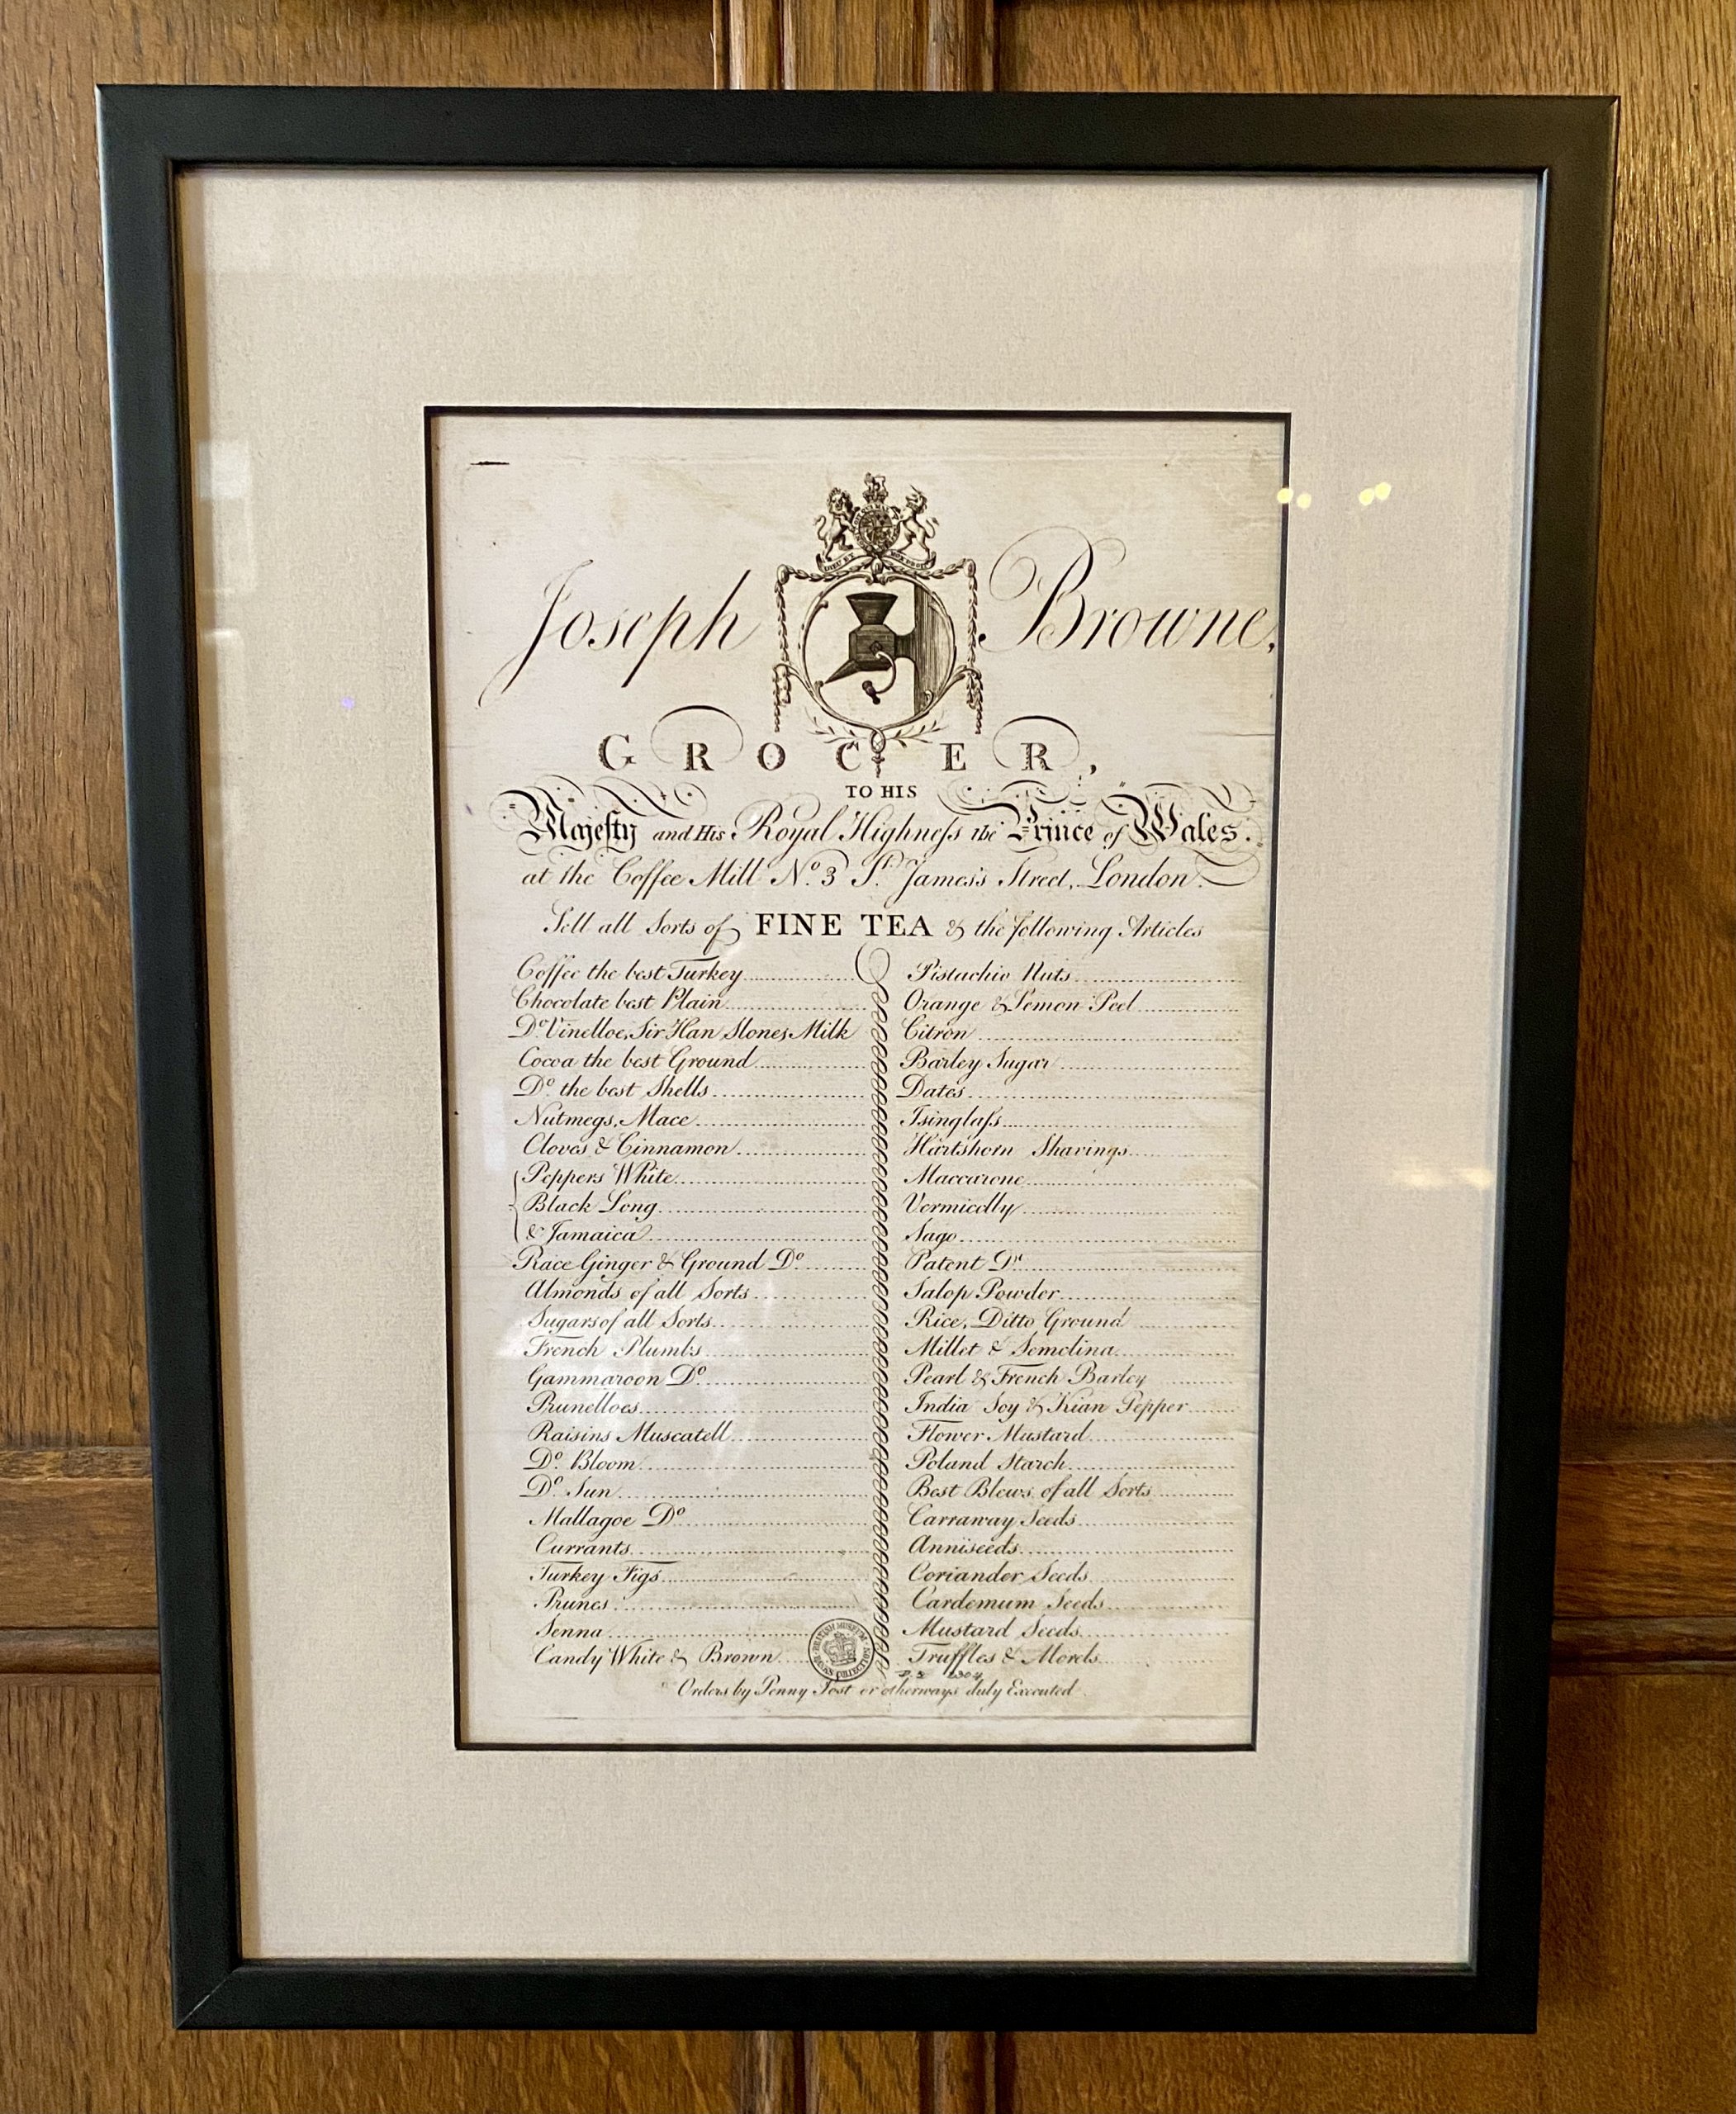 Joseph Browne,
GROCER,
TO HIS
Majesty and His Royal Highneſs the Prince of Wales.
at the Coffee Mill No. 3 St. James's Street, London.
Sell all Sorts of FINE TEA & the following Articles
Coffee the best Turkey
Chocolate best Plain
Do. Vinelloe, Sir Han Slones, Milk
Cocoa the best Ground
Do. the best Shells
Nutmegs, Mace
Cloves & Cinnamon
Peppers White
Black Long
& Jamaica
Race Ginger & Ground Do
Almonds of all Sorts
Sugars of all Sorts
French Plumbs
Gammaroon Do
Prunelloes
Raisins Muscatell
Do. Bloom
Do. Sun
Mallagoe Do
Currants
Turkey Figs
Prunes
Senna
Candy White & Brown
Pistachio Nuts
Orange & Lemon Peel
Citron
Barley Sugar
Dates
Isinglaſs
Hartshorn Shavings
Maccarone
Vermicelly
Sago
Patent Do
Salop Powder
Rice, Ditto Ground
Millet & Semolina
Pearl & French Barley
India Soy & Kian Pepper
Flower Mustard
Poland Starch
Best Blews of all Sorts
Carraway Seeds
Anniseeds
Coriander Seeds
Cardemum Seeds
Mustard Seeds
Truffles & Morels
Orders by Penny Post or otherways duly Executed